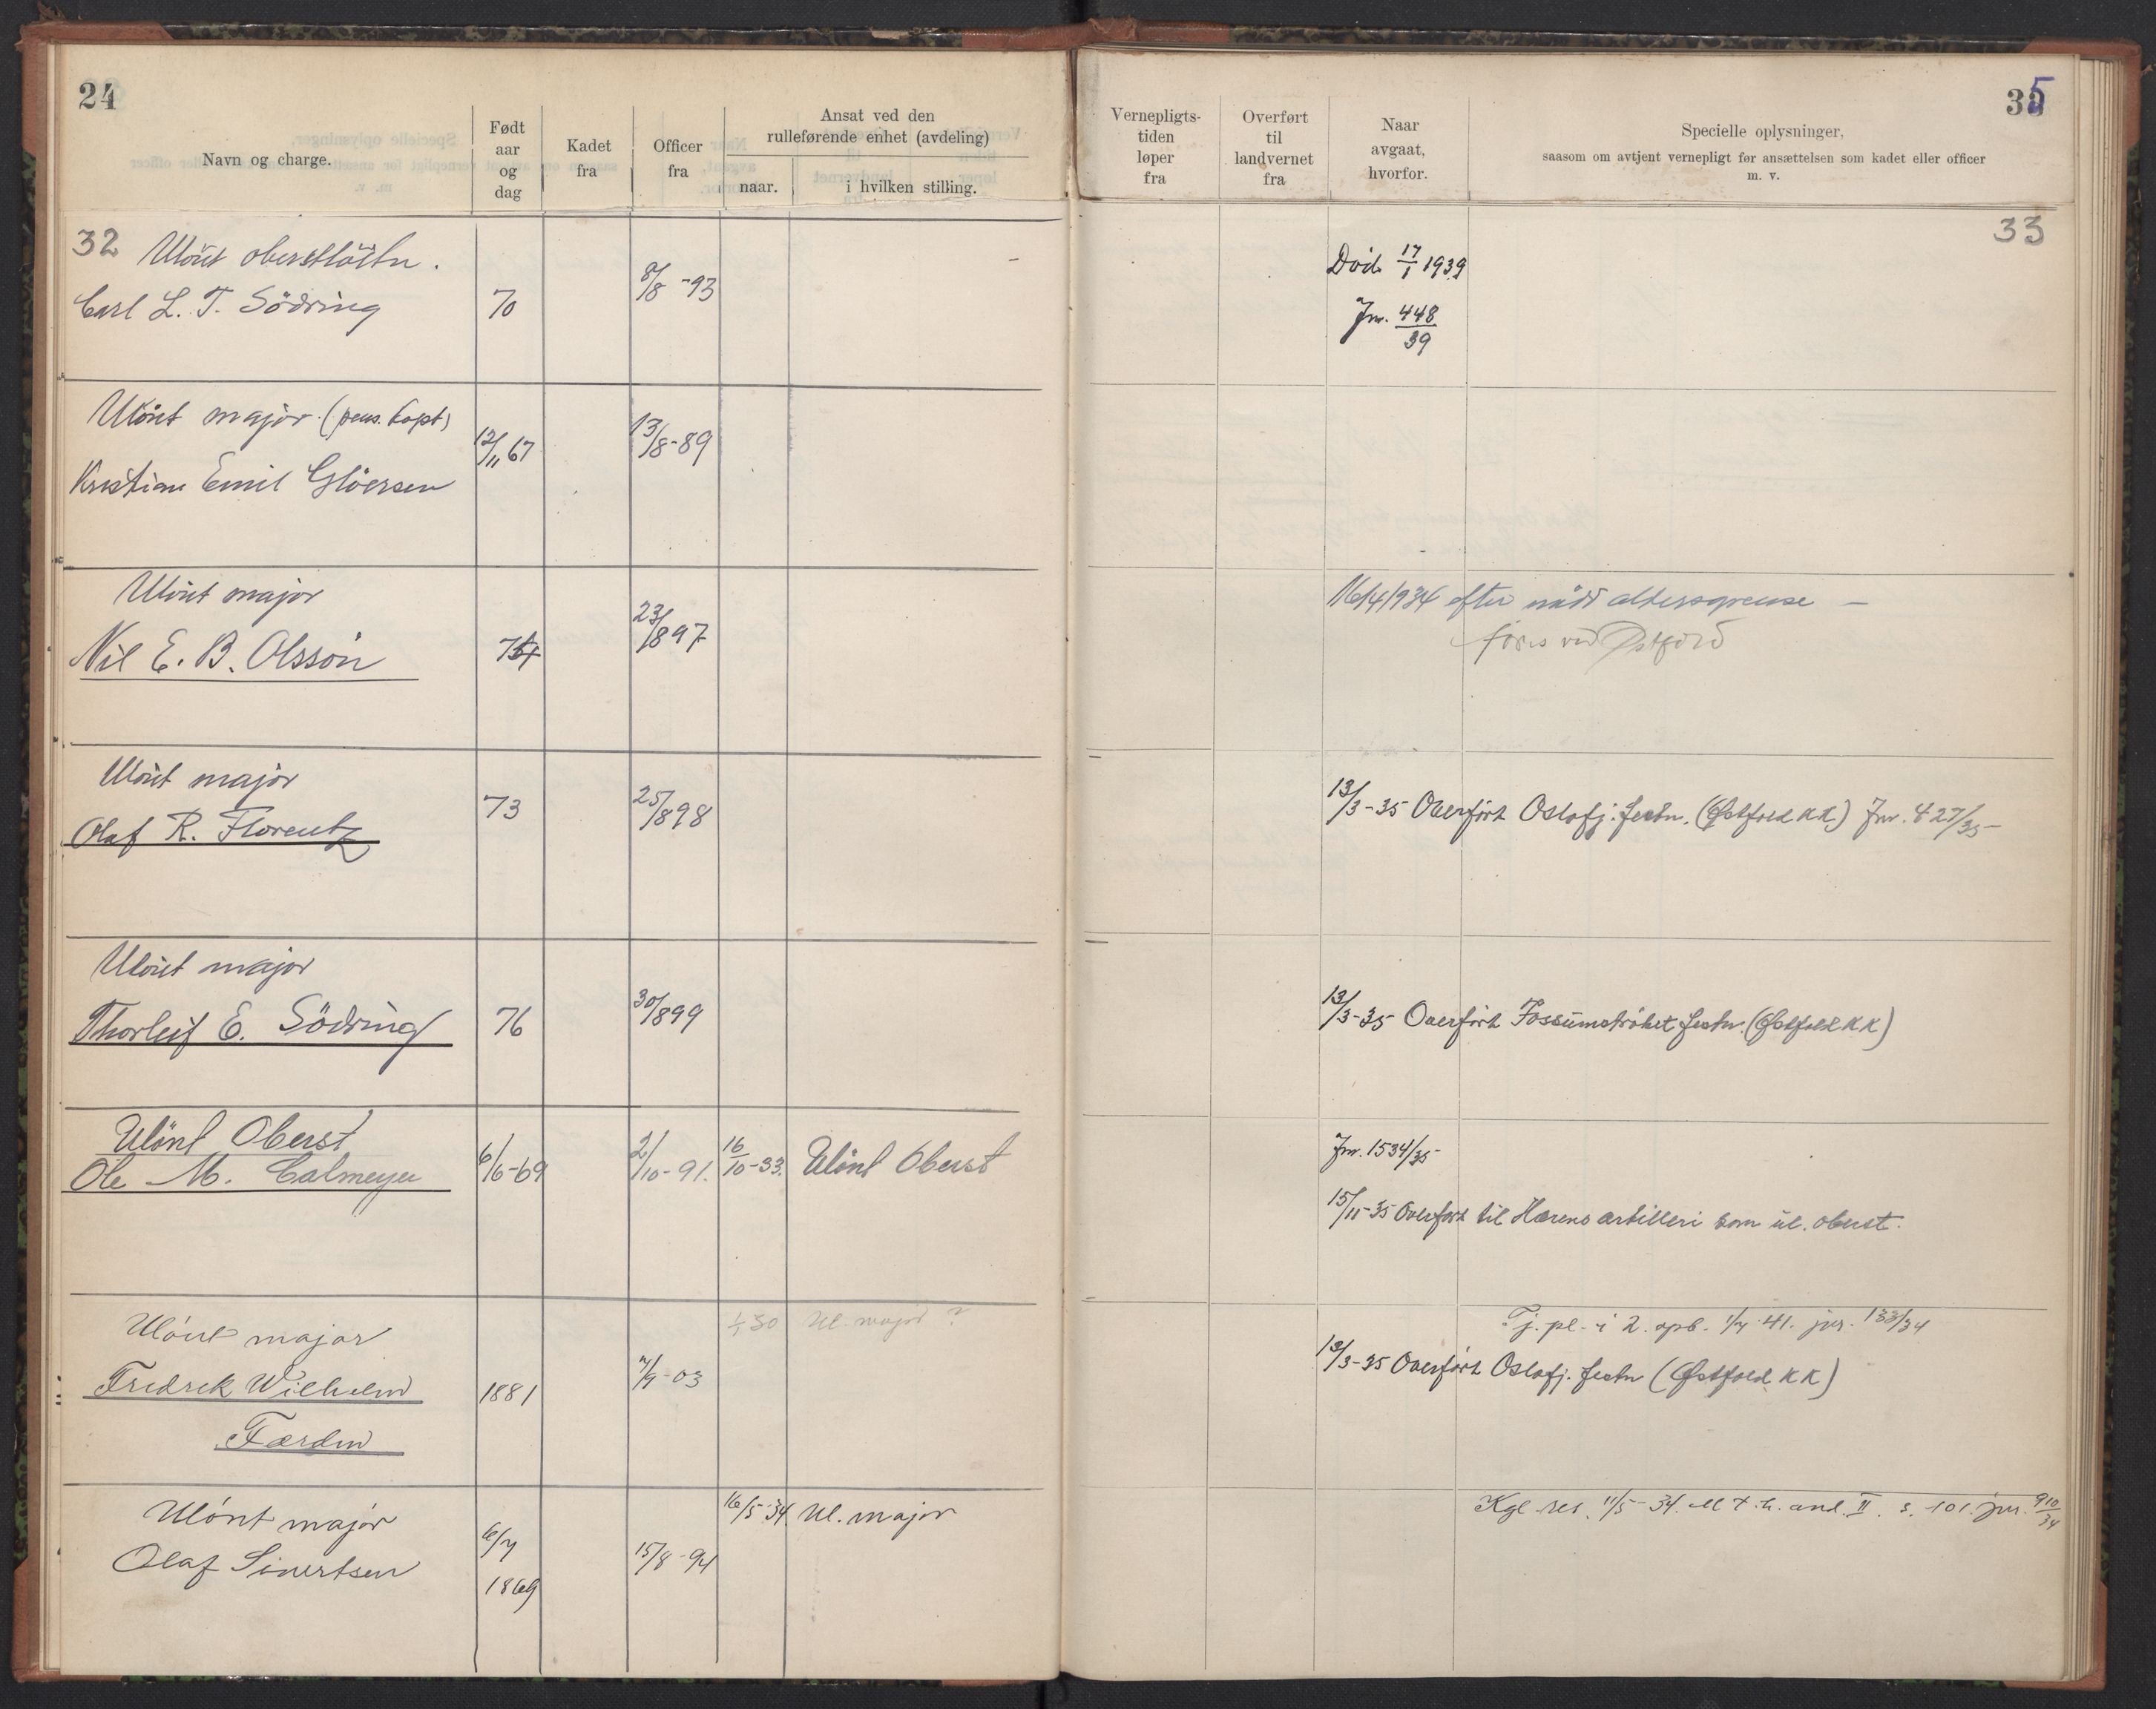 24
Navn og charge.
Født aar og dag
Kadet fra
Officer fra
Ansat ved den rulleførende enhet (avdeling)
naar.
i hvilken stilling.
32 Ulönt oberstlöitn.
Carl L. T. Södring
70
8/8 -93
Ulönt major (pens. kapt)
Kristian Emil Glöersen
12/11 67
13/8-89
Ulönt major
Nil E. B. Olsson
23/897
Ulönt major
Olaf R. Florentz
73
25/898
Ulönt major
Thorleif E. Södring
76
30/899
Ulönt Oberst
Ole M. Calmeyer
6/6-69
2/10-91.
16/10-33.
Ulönt Oberst
Ulönt major
Fredrek Wilhelm
Færden
1881
7/9-03
1/1 30
Ul. major ?
Ulönt major
Olaf Sivertsen
6/7
1869
15/8-94
16/5-34.
Ul. major
35
Vernepligts-tiden løper fra
Overført til landvernet fra
Naar avgaat, hvorfor.
Specielle oplysninger,
saasom om avtjent vernepligt før ansættelsen som kadet eller officer
m. v.
33
Död 17/1 1939
Jnr. 448/39
16/4/934 efter nådd aldersgrense —
föres ved Østfold
13/3-35 Overfört Oslofj. festn. (Østfold KK) Jnr. 427/35-
13/3-35 Overfört Fossumströket festn. (Østfold KK)
Jnr. 1534/35-
15/11-35 Overfört til Hærens artilleri som ul. oberst.
Tj. pl. i 2. opb. 1/7 41. jnr. 133/34
13/3-35 Overfört Oslofj. festn (Østfold KK)
Kgl. res. 11/5-34. II. s. 101. jnr. 910/34